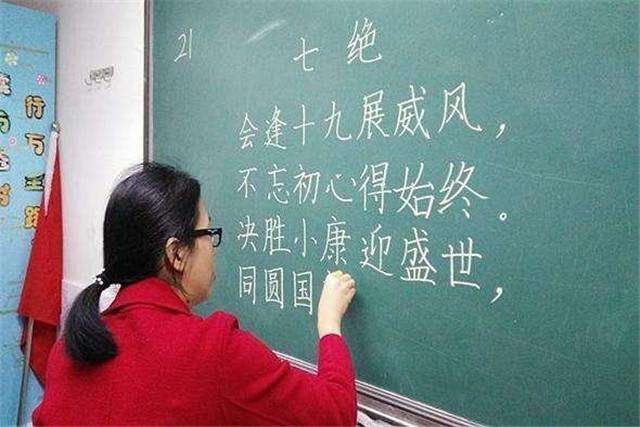 21
七绝
会逢十九展威风，
不忘初心得始终。
决胜小康迎盛世，
同圆国
行万里路